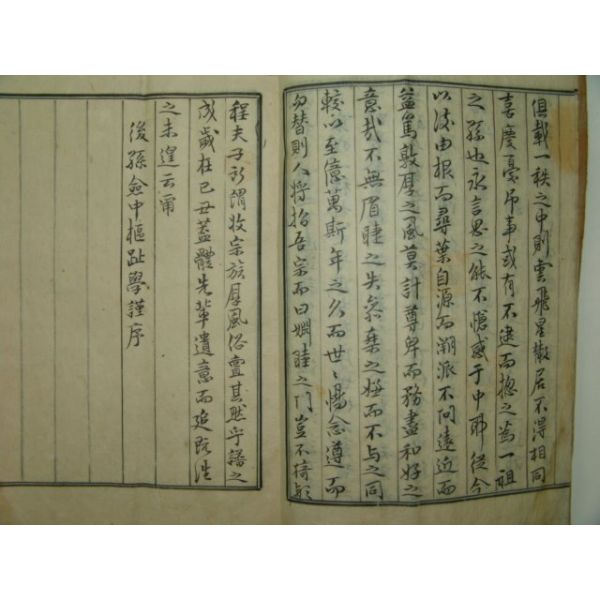 俱載一秩之中則雲飛星散居不得相同
喜慶憂吊事或有不逮而揔之為一祖
之孫也永言思之能不愴感于中耶從今
以後由根而尋葉自源而溯派不問遠近而
益篤敦厚之風莫計尊卑而務盡和好之
意哉不無眉睫之失而不与之同
較以至億萬斯年之久而世〻惕念遵而
勿替則人將指吾宗而曰婣睦之門豈不猗歟
程夫子所謂收宗族厚風俗亶其然乎譜之
成歲在己丑蓋體先輩遺意而追既往
之未遑云甯
後孫僉中樞趾學謹序